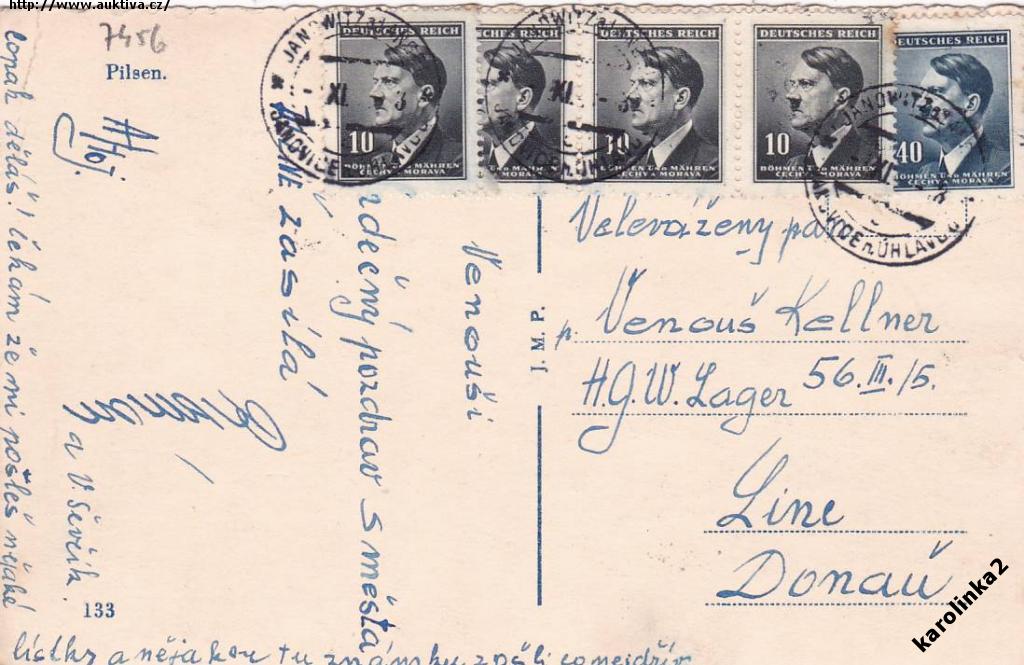 http://www.auktiva.cz/
7456
Pilsen.
Ahoj
Venouši
srdečný pozdrav s města
zasílá
Roman
a V. Ševčík.
copak děláš! čekám že mi pošleš nějaké
lístky a nějakou tu známku pošli co nejdřív
133
J. M. P.
DEUTSCHES REICH
10
BÖHMEN UND MÄHREN
ČECHY A MORAVA
DEUTSCHES REICH
BÖHMEN UND MÄHREN
ČECHY A MORAVA
DEUTSCHES REICH
10
BÖHMEN UND MÄHREN
ČECHY A MORAVA
DEUTSCHES REICH
10
BÖHMEN UND MÄHREN
ČECHY A MORAVA
DEUTSCHES REICH
40
BÖHMEN UND MÄHREN
ČECHY A MORAVA
JANOWITZ
JANOVICE n. ÚHLAVOU
Velevážený pan
p. Venouš Kellner
H.G.W. Lager 56.III./5.
Line
Donaú
karolinka2